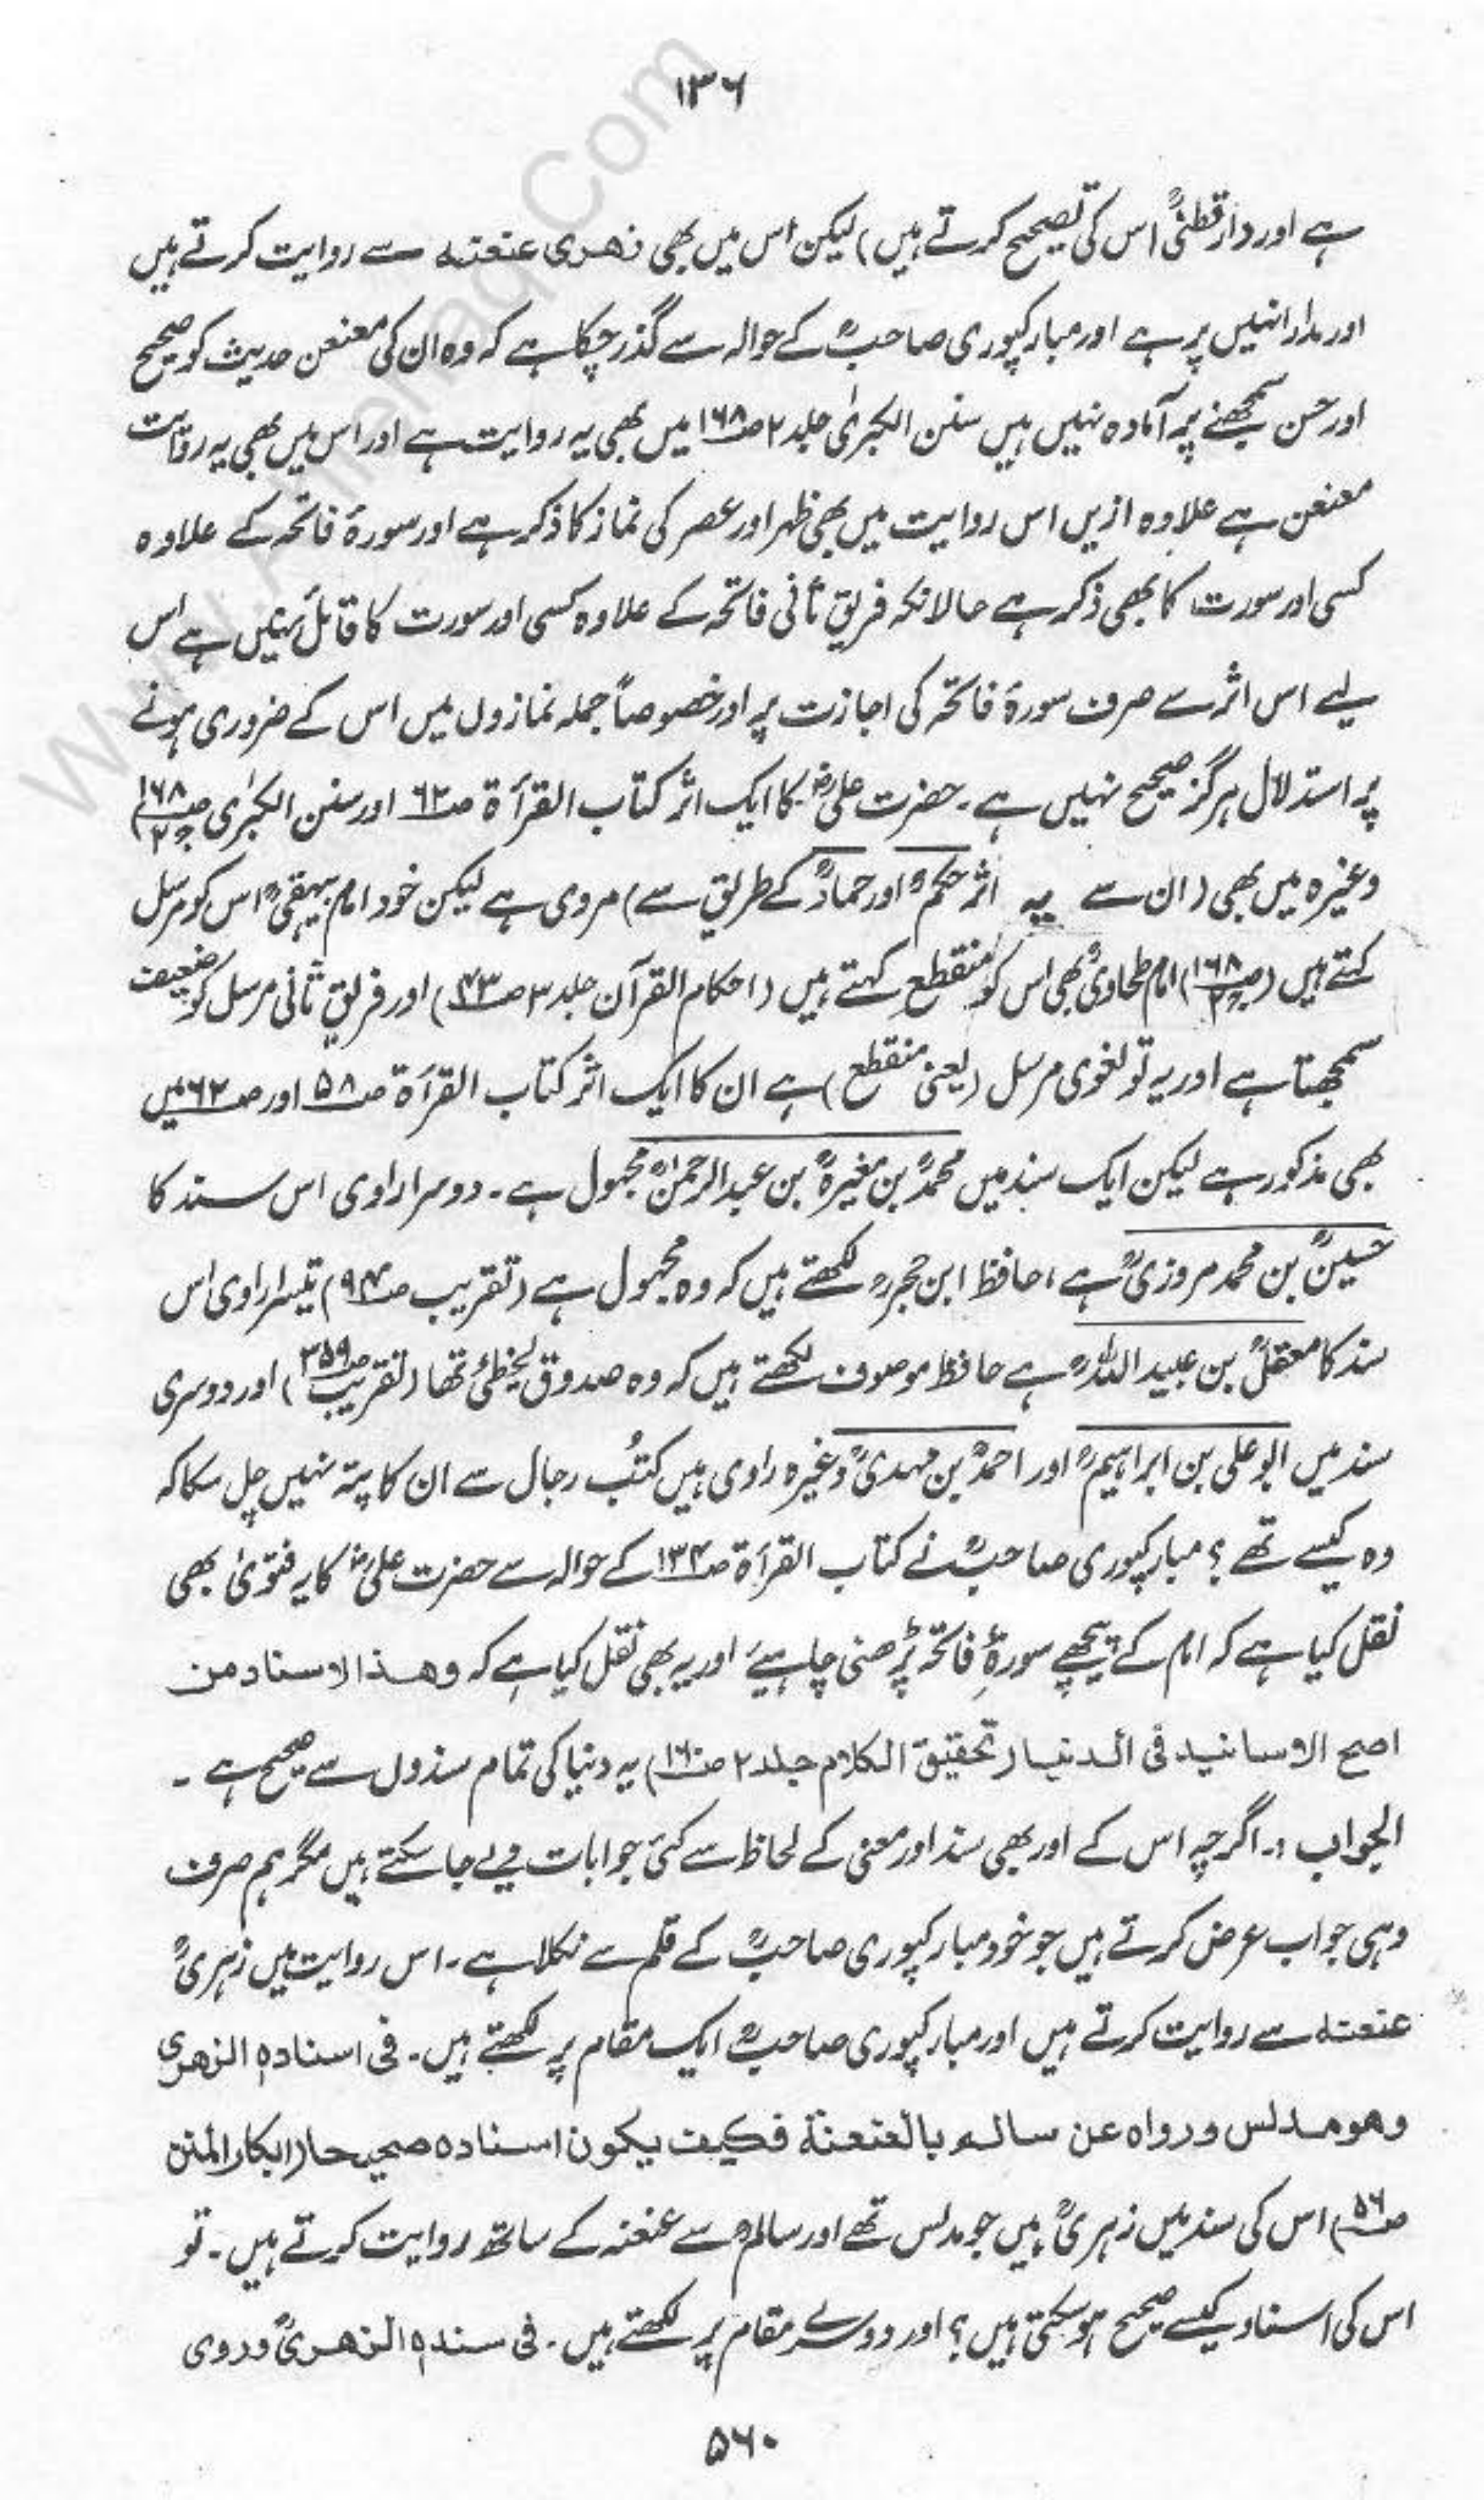 ۱۳۶
ہے اور دارقطنیؒ اس کی تصحیح کرتے ہیں) لیکن اس میں بھی زھری عنعنہ سے روایت کرتے ہیں
اور مدار انہیں پر ہے اور مبارکپوری صاحبؒ کے حوالہ سے گذر چکا ہے کہ وہ ان کی معنعن حدیث کو صحیح
اور حسن سمجھنے پر آمادہ نہیں ہیں سنن الکبریٰ جلد ۲ ص۱۶۸ میں بھی یہ روایت ہے اور اس میں بھی یہ روایت
معنعن ہے علاوہ ازیں اس روایت میں بھی ظہر اور عصر کی نماز کا ذکر ہے اور سورۂ فاتحہ کے علاوہ
کسی اور سورت کا بھی ذکر ہے حالانکہ فریق ثانی فاتحہ کے علاوہ کسی اور سورت کا قائل نہیں ہے اس
لیے اس اثر سے صرف سورۂ فاتحہ کی اجازت پر اور خصوصاً جملہ نمازوں میں اس کے ضروری ہونے
پر استدلال ہرگز صحیح نہیں ہے۔ حضرت علیؓ کا ایک اثر کتاب القرأۃ ص۶۲ اور سنن الکبرٰی ص۱۶۸ ج۲)
وغیرہ میں بھی (ان سے یہ اثر حکمؒ اور حمادؒ کے طریق سے) مروی ہے لیکن خود امام بیہقیؒ اس کو مرسل
کہتے ہیں (ص۱۶۸ ج۲) امام طحاویؒ بھی اس کو منقطع کہتے ہیں (احکام القرآن جلد ۳ ص۴۳) اور فریق ثانی مرسل کو ضعیف
سمجھتا ہے اور یہ تو لغوی مرسل (یعنی منقطع) ہے ان کا ایک اثر کتاب القرأۃ ص۵۸ اور ص۶۲ میں
بھی مذکور ہے لیکن ایک سند میں محمدؒ بن مغیرہؒ بن عبدالرحمٰنؒ مجہول ہے۔ دوسرا راوی اس سند کا
حسینؒ بن محمد مروزیؒ ہے، حافظ ابن حجرؒ لکھتے ہیں کہ وہ مجہول ہے (تقریب ص۹۴) تیسرا راوی اس
سند کا معقلؒ بن عبید اللہؒ ہے حافظ موصوف لکھتے ہیں کہ وہ صدوق یخطئ تھا (تقریب ص۳۵۹) اور دوسری
سند میں ابو علی بن ابراہیمؒ اور احمدؒ بن مہدیؒ وغیرہ راوی ہیں کتبُ رجال سے ان کا پتہ نہیں چل سکا کہ
وہ کیسے تھے؟ مبارکپوری صاحبؒ نے کتاب القرأۃ ص۱۳۴ کے حوالہ سے حضرت علیؓ کا یہ فتویٰ بھی
نقل کیا ہے کہ امام کے پیچھے سورۂ فاتحہ پڑھنی چاہیے اور یہ بھی نقل کیا ہے کہ وھذا الاسناد من
اصح الاسانید فی الدنیا (تحقیق الکلام جلد ۲ ص۱۶۰) یہ دنیا کی تمام سندوں سے صحیح ہے ۔
الجواب :۔ اگرچہ اس کے اور بھی سند اور معنی کے لحاظ سے کئی جوابات دیے جا سکتے ہیں مگر ہم صرف
وہی جواب عرض کرتے ہیں جو خود مبارکپوری صاحبؒ کے قلم سے نکلا ہے۔ اس روایت میں زہریؒ
عنعنہ سے روایت کرتے ہیں اور مبارکپوری صاحبؒ ایک مقام پر لکھتے ہیں۔ فی اسنادہ الزھری
وھو مدلس ورواہ عن سالم بالعنعنۃ فکیف یکون اسنادہ صحیحا (ابکار المنن
ص۵۶) اس کی سند میں زہریؒ ہیں جو مدلس تھے اور سالمؒ سے عنعنہ کے ساتھ روایت کرتے ہیں۔ تو
اس کی اسناد کیسے صحیح ہو سکتی ہیں؟ اور دوسرے مقام پر لکھتے ہیں۔ فی سندہ الزھریؒ وروی
۵۶۰